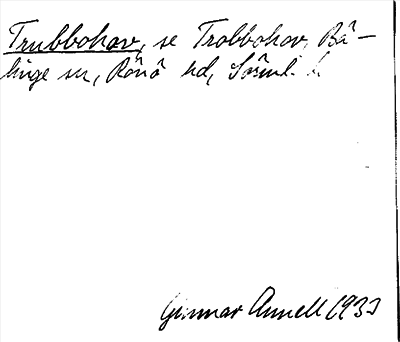 Trubbohav, se Trobbohov, Bä-
linge sn, Rönö hd, Sörml. l.
Gunnar Annell 1933